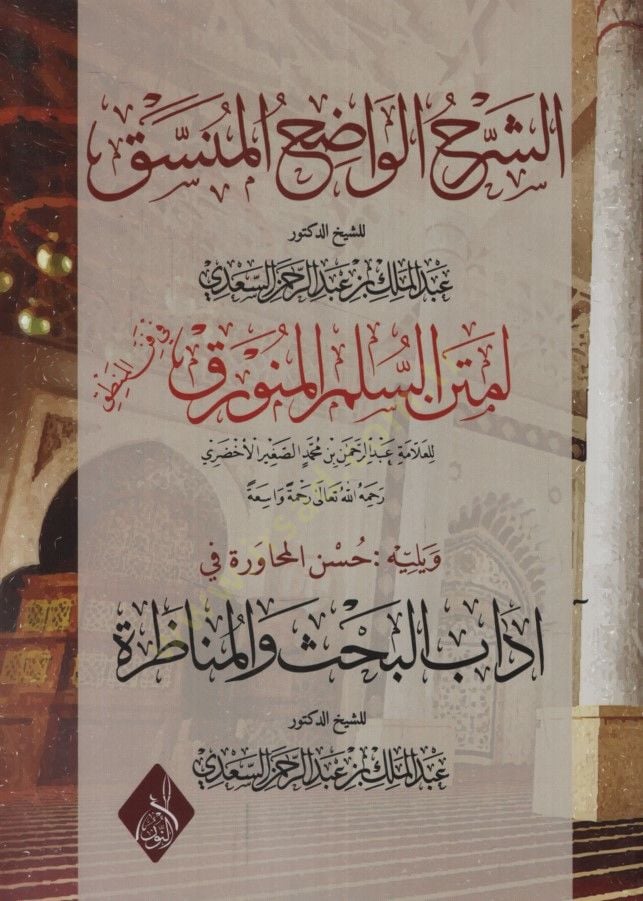 الشَّرْحُ الوَاضِحُ المُنَسَّق
للشيخ الدكتور
عَبْدالمَلِك بْن عَبْدالرَّحْمَن السَّعْدِي
لمَتن السُّلم المُنَوْرَق
في فن المنطق
للعَلَّامَةِ عَبْدِالرَّحْمَنِ بْنِ مُحَمَّدٍ الصَّغِيرِ الأَخْضَرِي
رَحِمَهُ اللهُ تَعَالَى رَحْمَةً وَاسِعَةً
وَيَلِيْه : حُسْن المُحَاوَرَة في
آدَاب البَحْث وَالمُنَاظَرَة
للشيخ الدكتور
عَبْدالمَلِك بْن عَبْدالرَّحْمَن السَّعْدِي